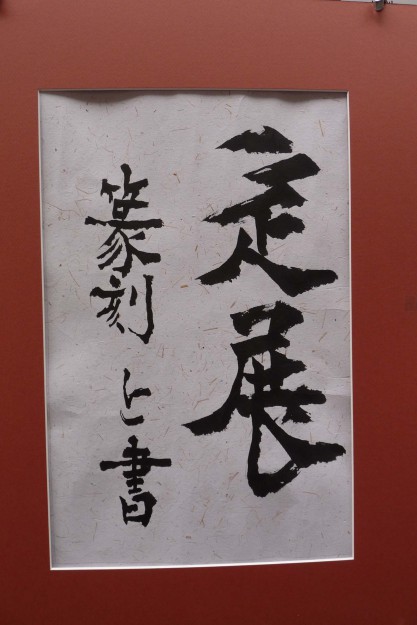 定展
篆刻と書